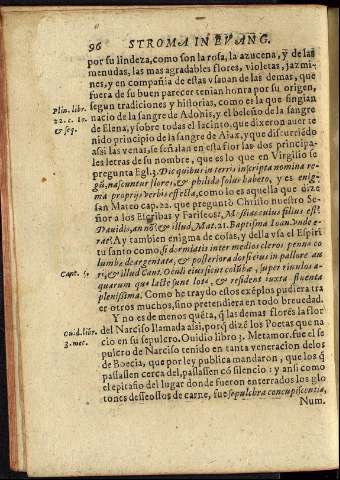 96 STROMA IN EVANG.
por su lindeza, como son la rosa, la azucena, y de las
menudas, las mas agradables flores, violetas, jazmi-
nes, y en compañia de estas vsauan de las demas, que
fuera de su buen parecer tenian honra por su origen,
Plin. libr.
22. c. 10.
& seq.
segun tradiciones y historias, como es la que fingian
nacio de la sangre de Adonis, y el beleño de la sangre
de Elena, y sobre todas el Iacinto, que dixeron auer te
nido principio de la sangre de Aiax, y que discurriēdo
assi las venas, se señalan en esta flor las dos principa-
les letras de su nombre, que es lo que en Virgilio se
pregunta Egl. 3. Dic quibus in terris inscripta nomina re-
gū, nascuntur flores, & philida solus habeto, y es enig-
ma propriis verbis effecta, como lo es aquella que dize
san Mateo cap. 22. que preguntò Christo nuestro Se-
ñor a los Escribas y Fariseos, Messias cuius filius est?
Dauidis, an nō? & illud, Mat. 21. Baptisma Ioan. vnde e-
rat? Ay tambien enigma de cosas, y della vsa el Espiri
tu santo como, si dormiatis inter medios cleros penna co
lumbæ de argentatæ, & posteriora dorsi eius in pallore au
Cant. 5.
ri, & illud Cant. Oculi eius sicut colūbæ, super riuulos a-
quarum quæ lacte sunt lotæ, & resident iuxta fluenta
plenissima. Como he traydo estos exēplos pudiera tra
er otros muchos, sino pretendiera en todo breuedad.
Y no es de menos quēta, q̄ las demas flores la flor
Ouid. libr.
3. met.
del Narciso llamada assi, porq̄ dizē los Poetas que na
cio en su sepulcro. Ouidio libro 3. Metamor. fue el se
pulcro de Narciso tenido en tanta veneracion de los
de Boecia, que por ley publica mandaron, que los q̄
passassen cerca del, passassen cō silencio: y ansi como
el epitafio del lugar donde fueron enterrados los glo
tones desseosos de carne, fue sepulchra concupiscentiæ,
Num.